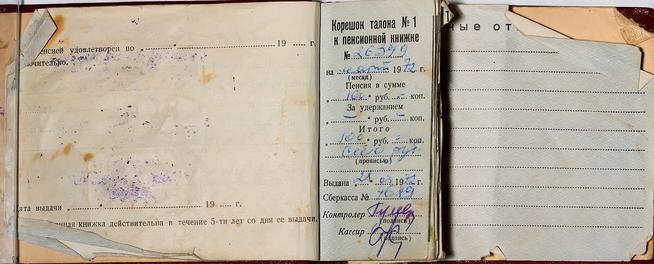 енсией удовлетворен по 19 г.
ючительно.
Дата выдачи 19 г.
нная книжка действительна в течение 5-ти лет со дня ее выдачи.
Корешок талона № 1
к пенсионной книжке
№ 26399
на март 1972 г.
(месяц)
Пенсия в сумме
100 руб. – коп.
За удержанием
– руб. – коп.
Итого
100 руб. = коп.
Сто руб
(прописью)
Выдана 21 03 1972 г.
Сберкасса №
Контролер
(подпись)
Кассир
(подпись)
ные от